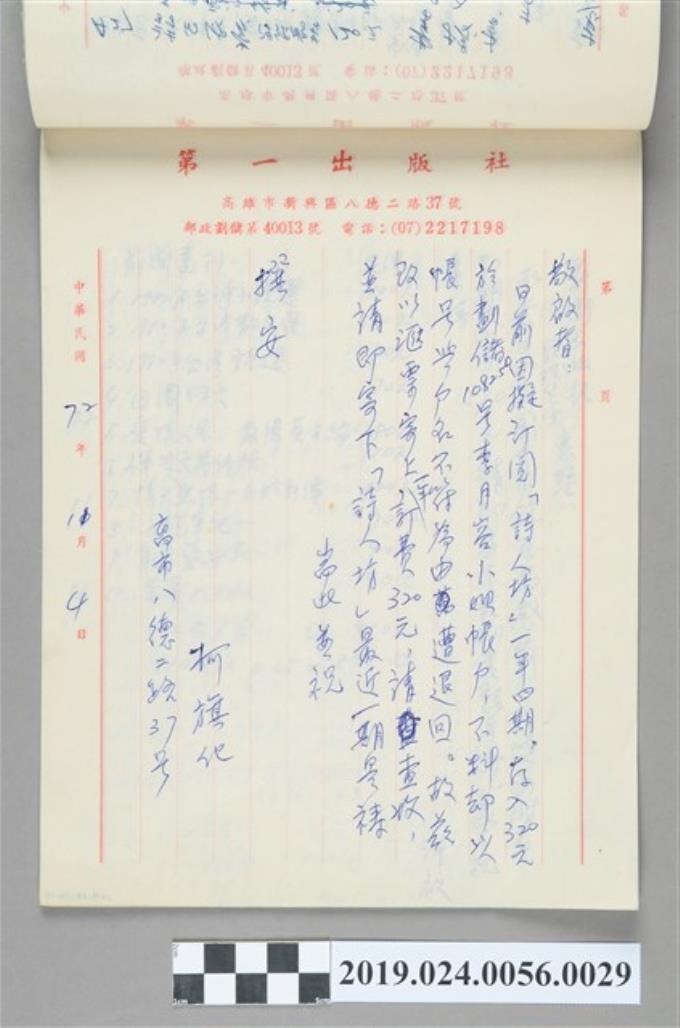 第一出版社
高雄市新興區八德二路37號
郵政劃儲第40013號 電話：(07)2217198
第 頁
敬啟者：
日前因擬訂閱「詩人坊」一年四期，存入320元
於劃儲 號李月容小姐帳戶，不料却以
帳号与户名不符為由遭退回。故茲
改以滙票寄上訂費320元，請查收，
並請即寄下「詩人坊」最近一期是禱
耑此並祝
撰安
柯旗化
高市八德二路37号
中華民國72年 月4日
2019.024.0056.0029